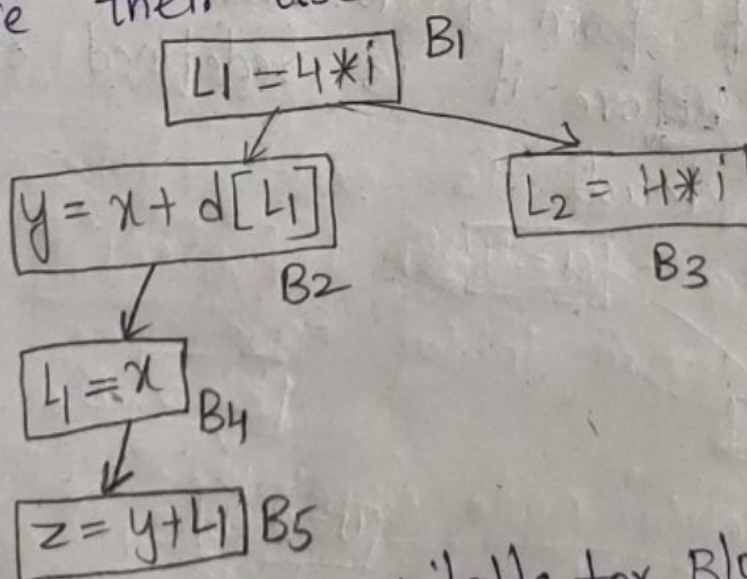 then
L1 = 4*i B1
y = x + d[L1]
B2
L2 = 4*i
B3
L1 = x B4
z = y+L1 B5
for